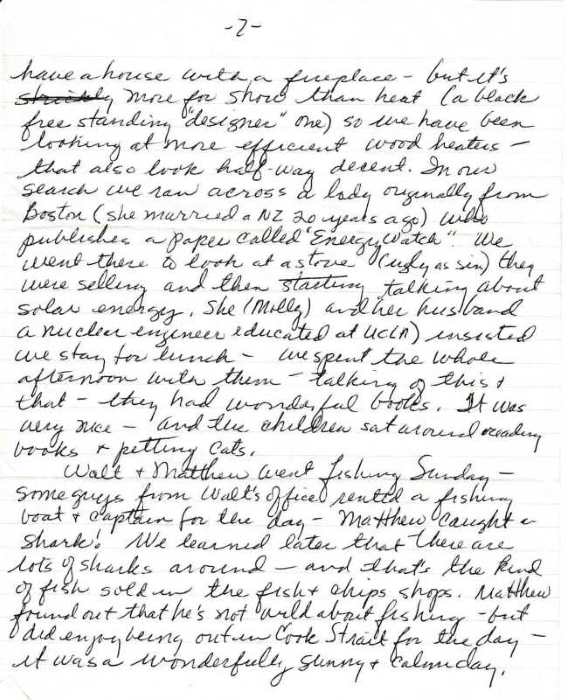 -7-
have a house with a fireplace - but it's
strickly more for show than heat (a black
free standing "designer" one) so we have been
looking at more efficient wood heaters -
that also look half-way decent. In our
search we ran across a lady originally from
Boston (she married a NZ 20 years ago) who
publishes a paper called "Energy Watch". We
went there to look at a stove (ugly as sin) they
were selling and then starting talking about
solar energy. She (Molly) and her husband
a nuclear engineer educated at UCLA) insisted
we stay for lunch - we spent the whole
afternoon with them - talking of this +
that - they had wonderful books. It was
very nice - and the children sat around reading
books + petting cats.
Walt + Matthew went fishing Sunday -
some guys from Walt's office rented a fishing
boat + captain for the day - Matthew caught a
shark! We learned later that there are
lots of sharks around - and that's the kind
of fish sold in the fish + chips shops. Matthew
found out that he's not wild about fishing - but
did enjoy being out in Cook Strait for the day -
it was a wonderfully sunny + calm day.